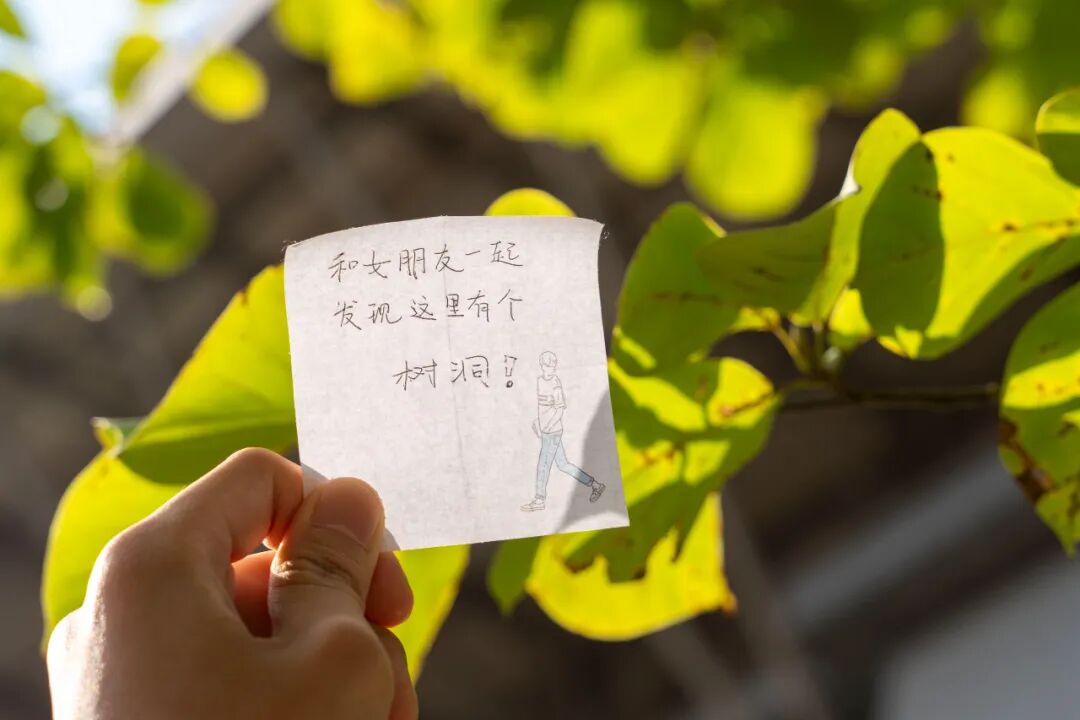 和女朋友一起
发现这里有个
树洞!!